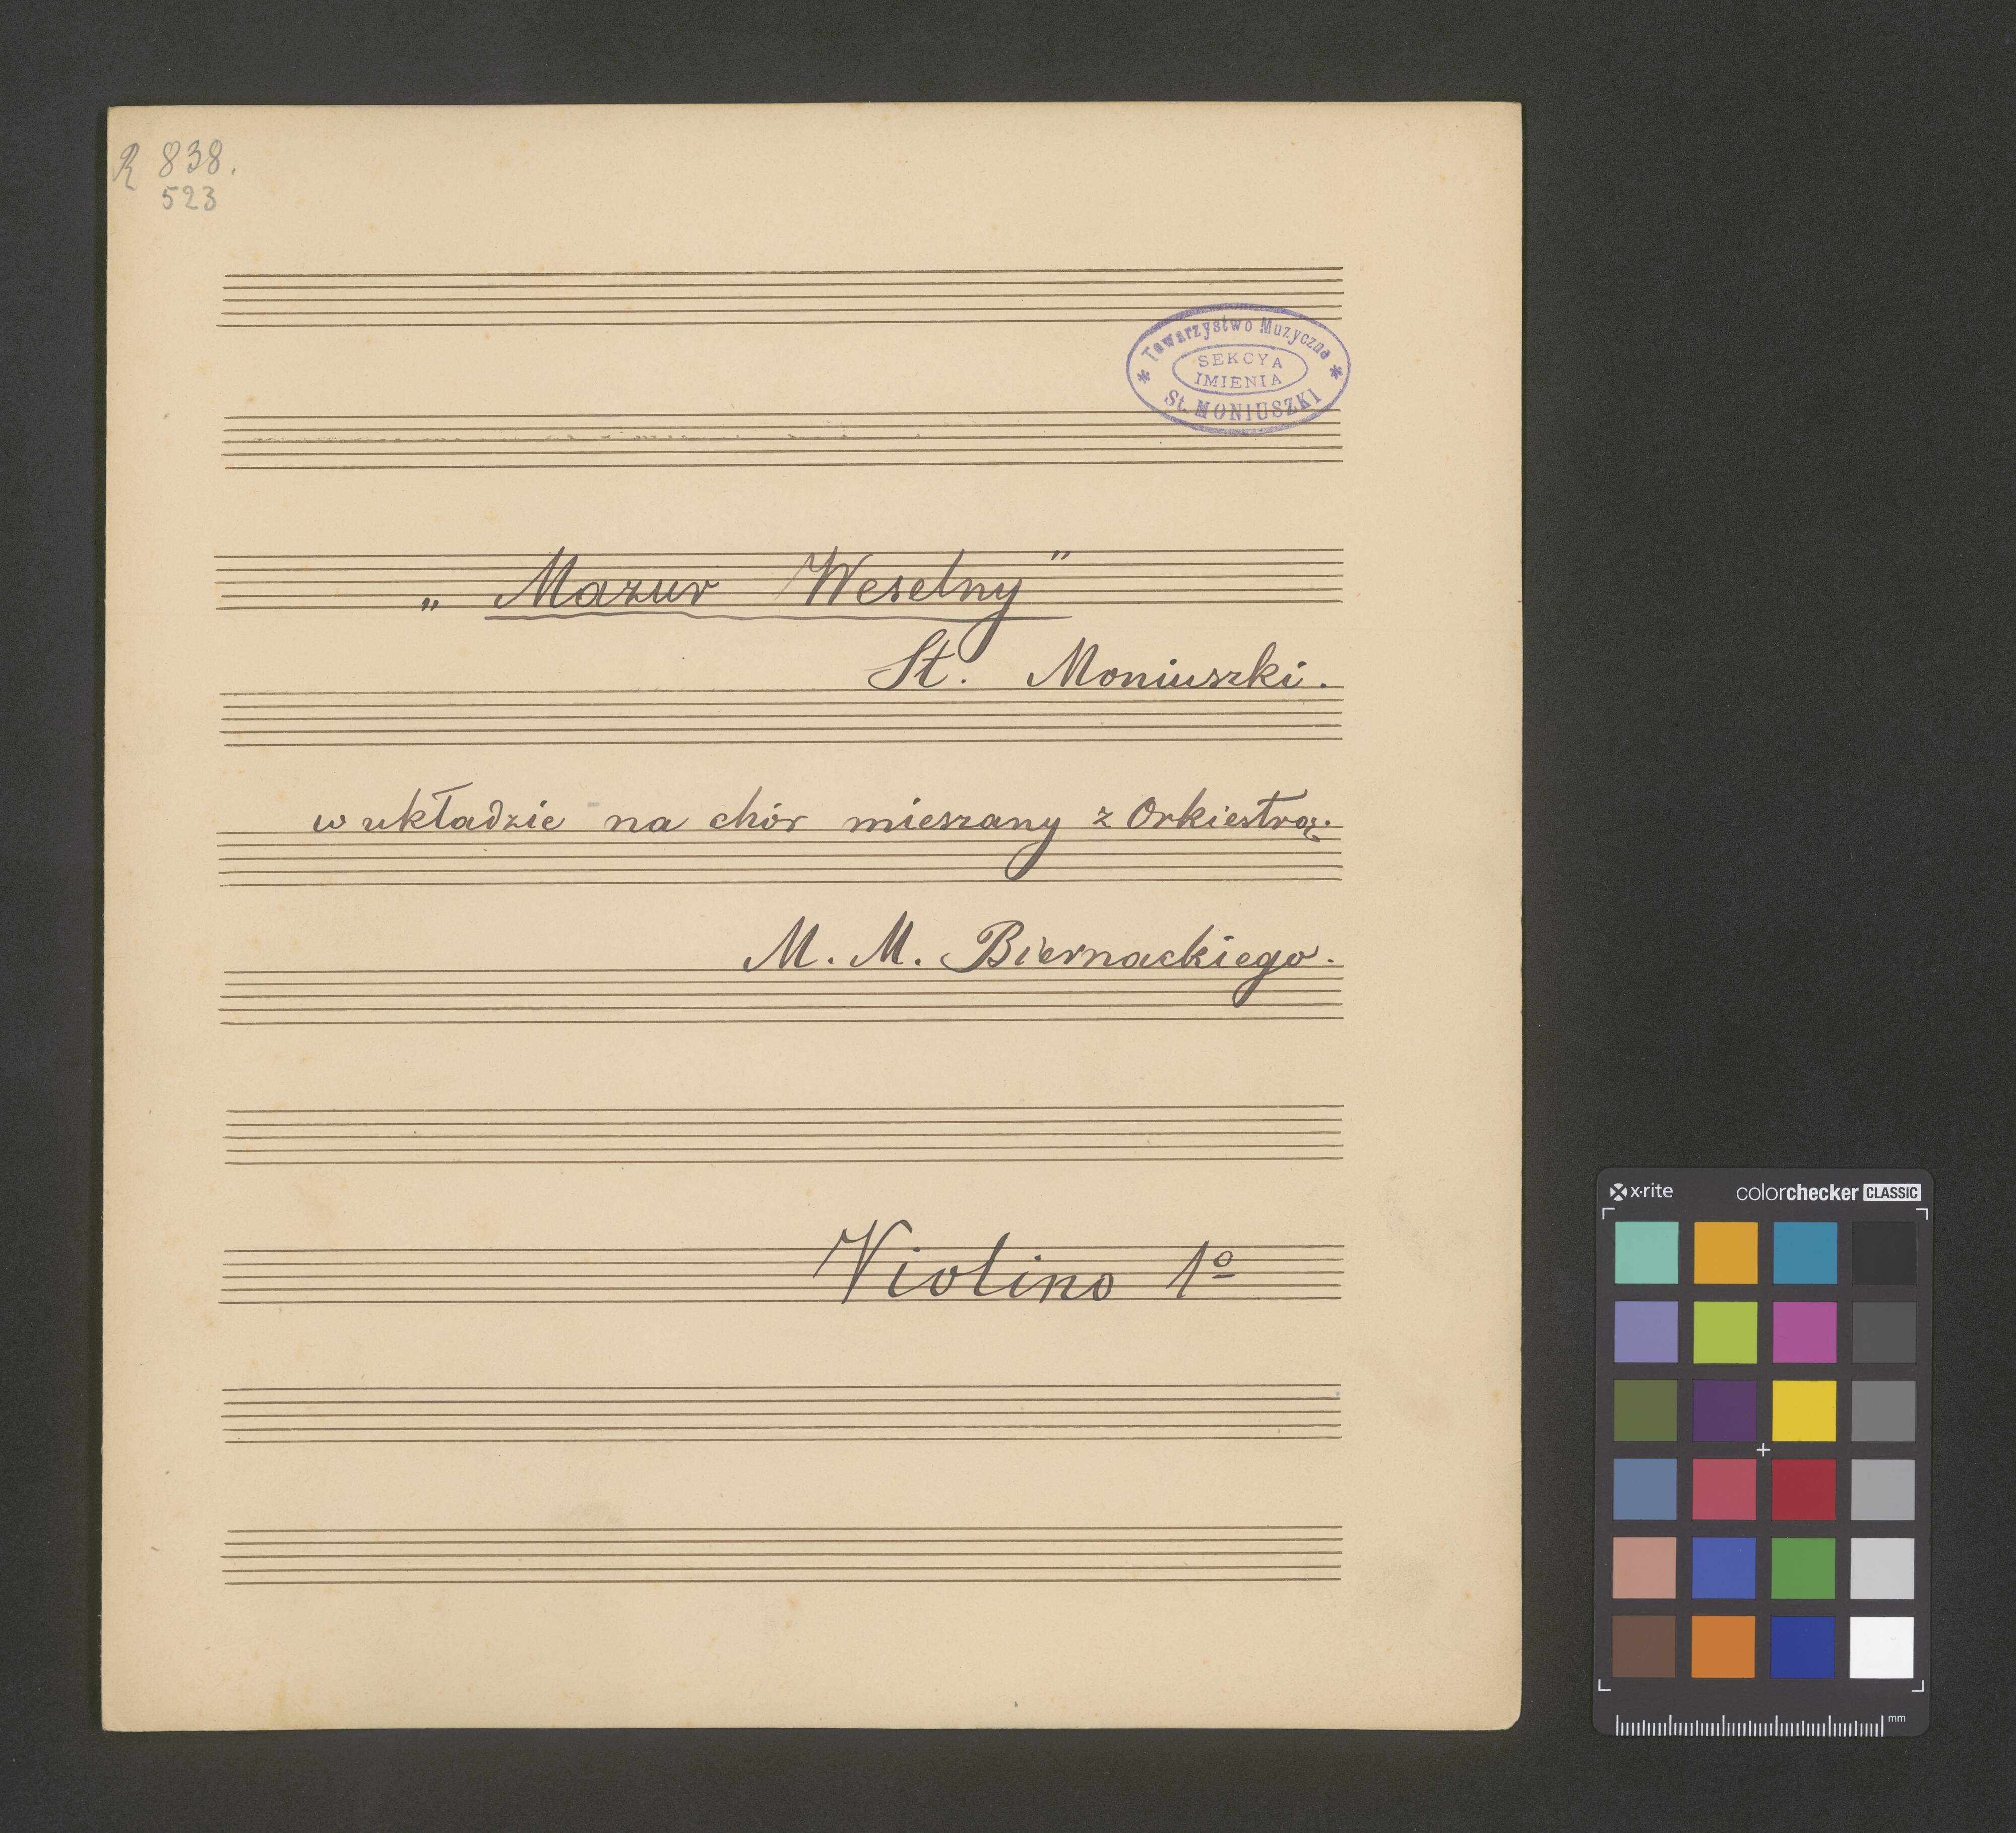 R 838.
523
Towarzystwo Muzyczne
SEKCYA
IMIENIA
St. MONIUSZKI
„Mazur Weselny"
St. Moniuszki.
w układzie na chór mieszany z Orkiestrą.
M. M. Biernackiego.
Violino 1º
x·rite colorchecker CLASSIC
mm